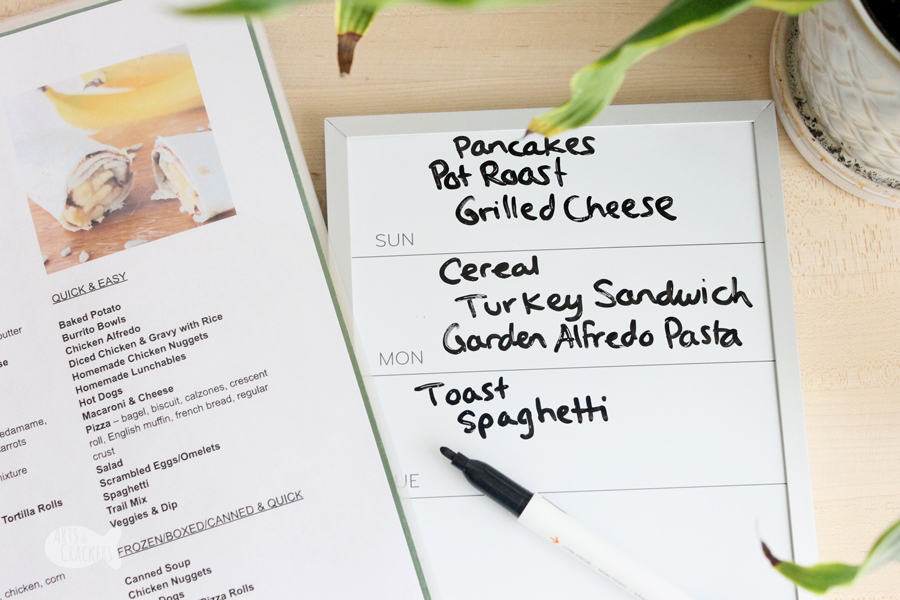 QUICK & EASY
Baked Potato
Burrito Bowls
Chicken Alfredo
Diced Chicken & Gravy with Rice
Homemade Chicken Nuggets
Homemade Lunchables
Hot Dogs
Macaroni & Cheese
Pizza – bagel, biscuit, calzones, crescent
roll, English muffin, french bread, regular
crust
Salad
Scrambled Eggs/Omelets
Spaghetti
Trail Mix
Veggies & Dip
FROZEN/BOXED/CANNED & QUICK
Canned Soup
Chicken Nuggets
Dogs
Pizza Rolls
Tortilla Rolls
chicken, corn
ARTSY
CRACKERS
Pancakes
Pot Roast
Grilled Cheese
SUN
Cereal
Turkey Sandwich
Garden Alfredo Pasta
MON
Toast
Spaghetti
UE